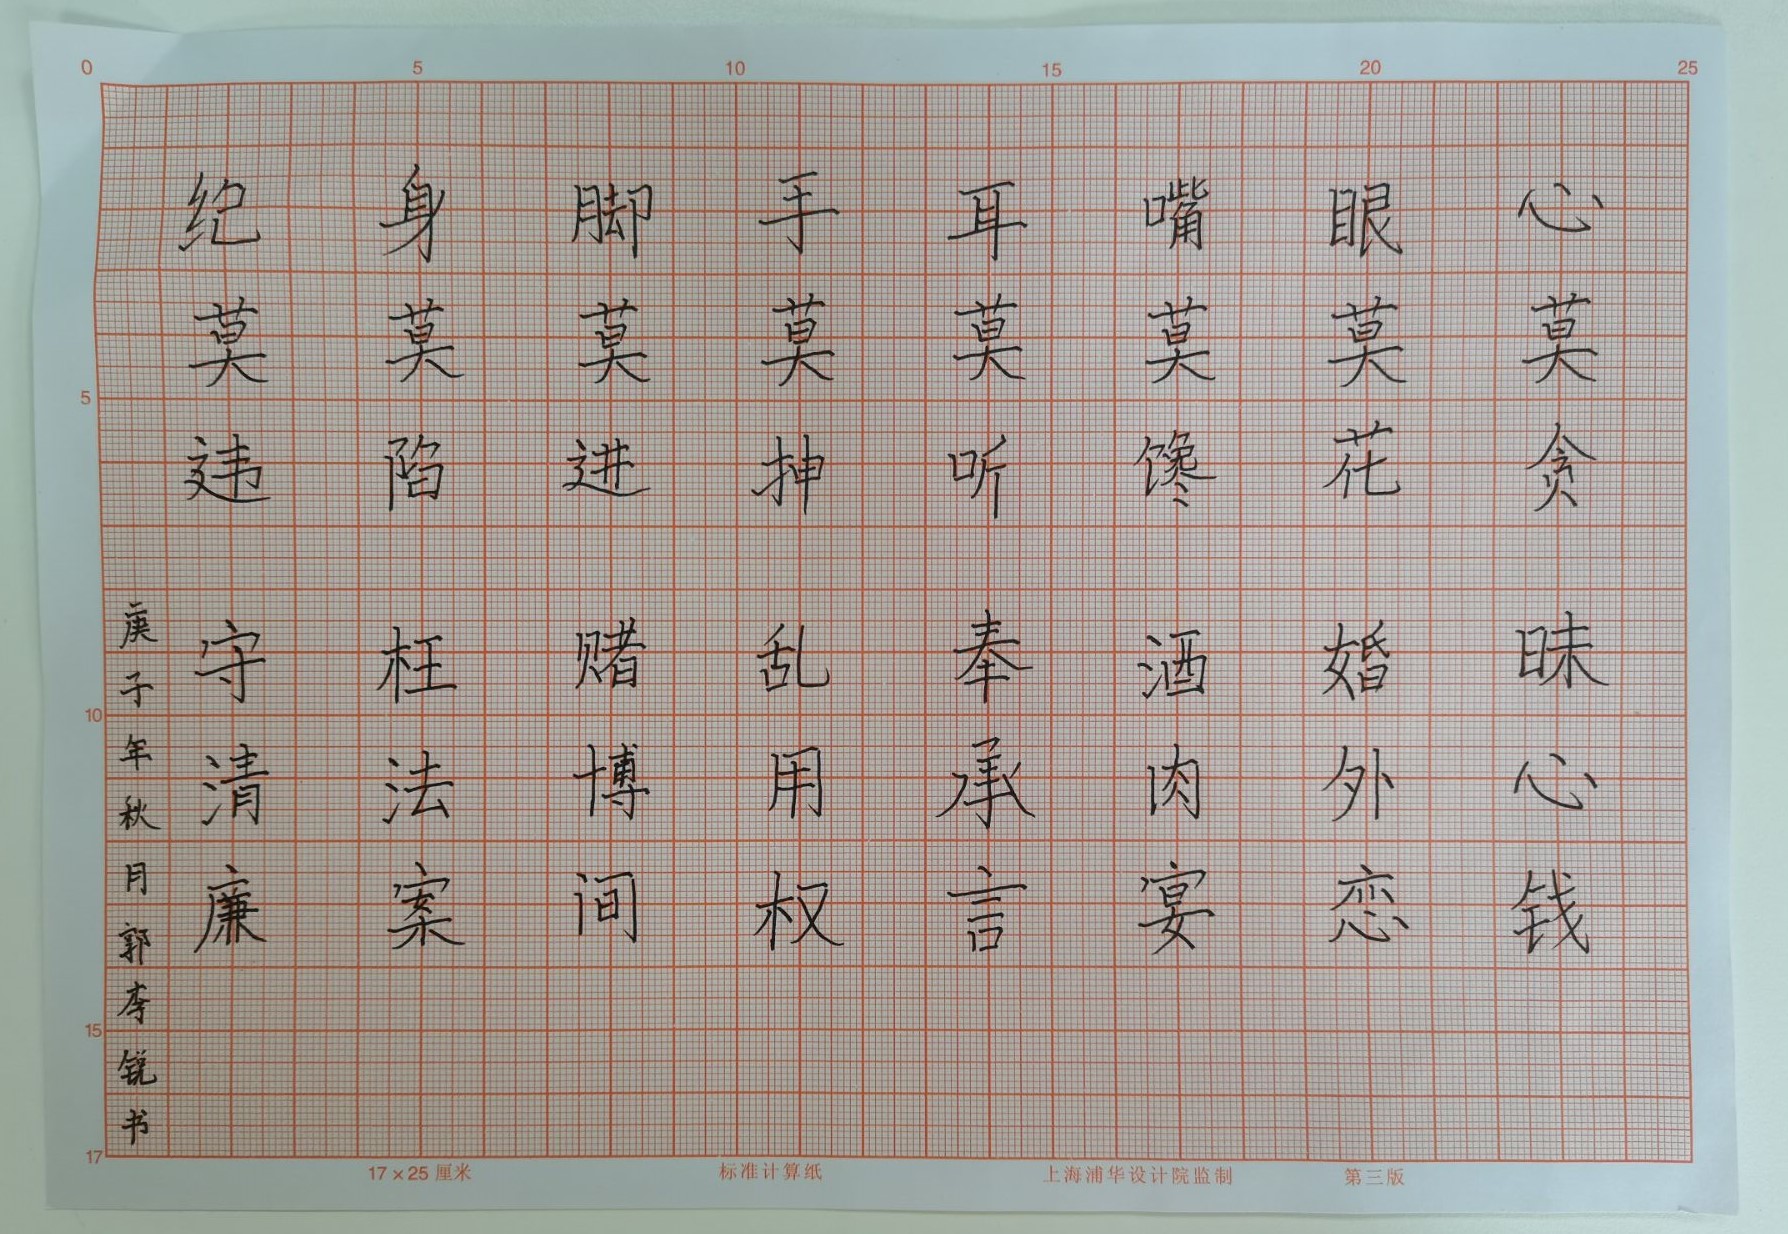 0 5 10 15 20 25
心莫贪 昧心钱
眼莫花 婚外恋
嘴莫馋 酒肉宴
耳莫听 奉承言
手莫抻 乱用权
脚莫进 赌博间
身莫陷 枉法案
纪莫违 守清廉
庚子年秋月郭李锐书
5
10
15
17
17×25 厘米 标准计算纸 上海浦华设计院监制 第三版